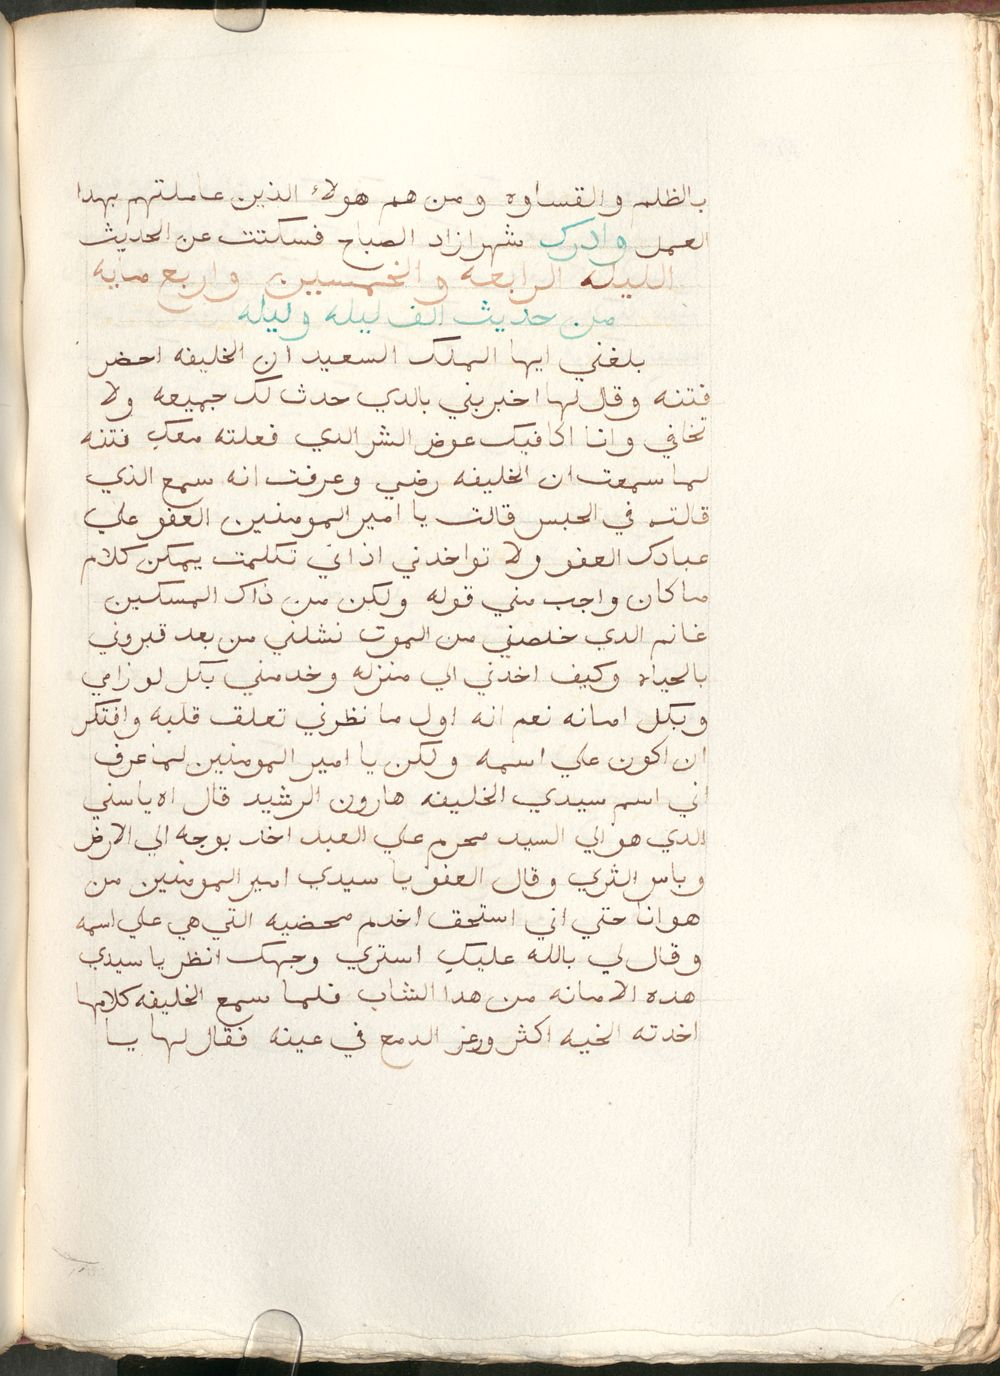 بالظلمه والقساوه ومن هم هولاء الذين عاملتهم بهدا
العمل وادرك شهرازاد الصباح فسكتت عن الحديث
الليله الرابعه والخمسين واربع مايه
من حديث الف ليله وليله
بلغني ايها الملك السعيد ان الخليفه احضر
فتنه وقال لها اخبريني بالدي حدث لك جميعه ولا
تخافي وانا اكافيك عوض الشر الدي فعلته معك فتنه
لما سمعت ان الخليفه رضي وعرفت انه سمع الذي
قالته في الحبس قالت يا امير المومنين العفو علي
عبادك العفو ولا تواخدني اذ اني تكلمت يمكن كلام
ما كان واجب مني قوله ولكن من ذاك المسكين
غانم الدي خلصني من الموت نشلني من بعد قبروني
بالحياه وكيف اخدني الي منزله وخدمني بكل لوزامي
وبكل امانه نعم انه اول ما نظرني تعلق قلبه وافتكر
ان اكون علي اسمه ولكن يا امير المومنين لمذ عرف
اني اسم سيدي الخليفه هارون الرشيد قال اه ياسني
الدي هو الي السيد محرم علي العبد اخد بوجه الي الارض
وباس الثري وقال العفو يا سيدي امير المومنين من
هو انا حتي اني استحق اخدم محضيه التي هي علي اسمه
وقال لي بالله عليك استري وجهك انظر يا سيدي
هده الامانه من هدا الشاب فلما سمع الخليفه كلامها
اخدته الخيه اكثر ورغز الدمع في عينه فقال لها يا